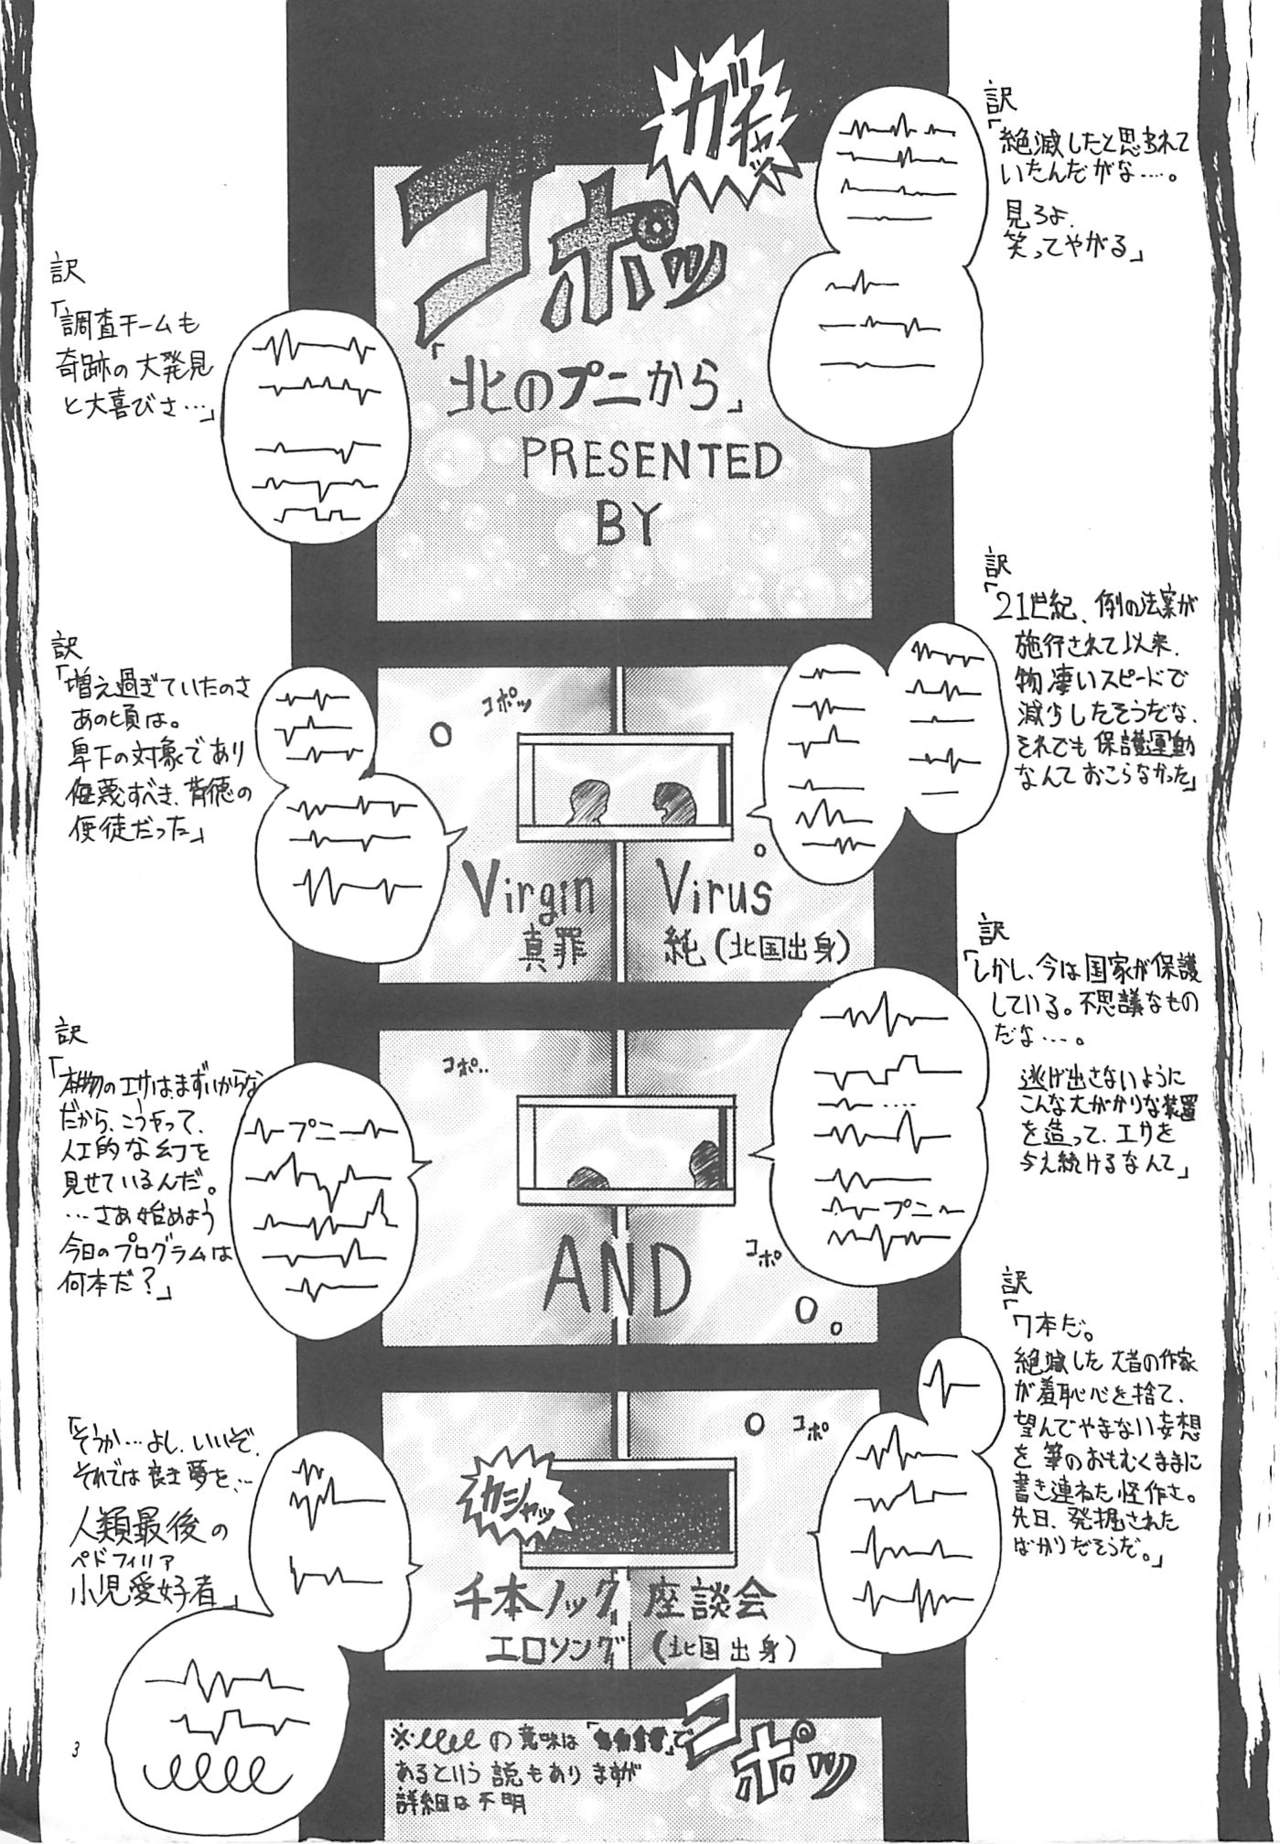 ガチャッ
コポッ
訳
「絶滅したと思われて
いたんだがな…。
見ろよ、
笑ってやがる」
訳
「調査チームも
奇跡の大発見
と大喜びさ…」
「北のプニから」
PRESENTED
BY
訳
「21世紀、例の法案が
施行されて以来、
物凄いスピードで
減少したそうだな、
それでも保護運動
なんておこらなかった」
訳
「増え過ぎていたのさ
あの頃は。
卑下の対象であり
侮蔑すべき、背徳の
使徒だった」
コポッ
Virgin Virus
真罪 純(北国出身)
訳
「しかし、今は国家が保護
している。不思議なもの
だな…。
逃げ出さないように
こんな大がかりな装置
を造って、エサを
与え続けるなんて」
プニ
訳
「本物のエサはまずいからな
だから、こうやって、
人工的な幻を
見せているんだ。
…さあ始めよう
今日のプログラムは
何本だ？」
プニ
コポ..
コポ
AND
訳
「7本だ。
絶滅した大昔の作家
が羞恥心を捨て、
望んでやまない妄想
を筆のおもむくままに
書き連ねた怪作さ。
先日、発掘された
ばかりだそうだ。」
「そうか…よし、いいぞ、
それでは良き夢を、…
人類最後の
ペドフィリア
小児愛好者」
コポ
カシャッ
千本ノック 座談会
エロソング (北国出身)
コポッ
※ の意味は「 」で
あるという説もありますが
詳細は不明
3